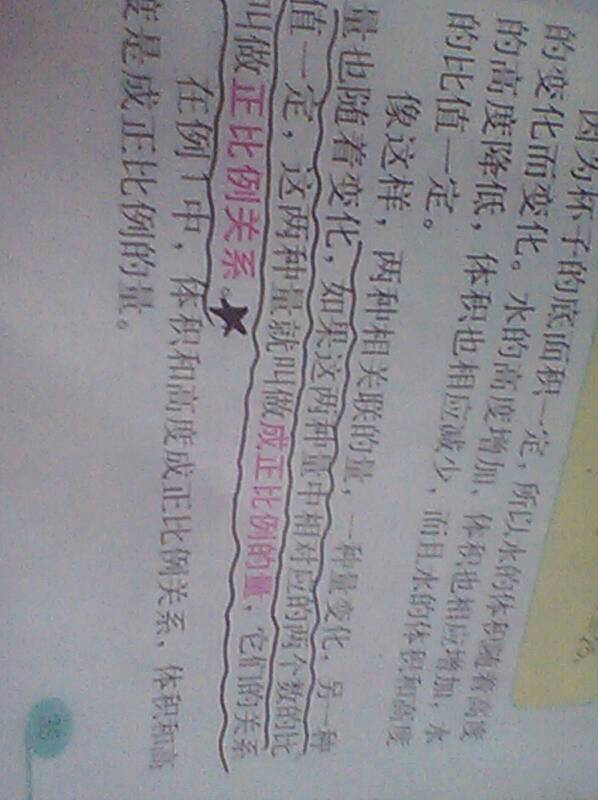 因为杯子的底面积一定，所以水的体积随着高度
的变化而变化。水的高度增加，体积也相应增加，水
的高度降低，体积也相应减少，而且水的体积和高度
的比值一定。
像这样，两种相关联的量，一种量变化，另一种
量也随着变化，如果这两种量中相对应的两个数的比
值一定，这两种量就叫做成正比例的量，它们的关系
叫做正比例关系。
在例1中，体积和高度成正比例关系，体积和高
度是成正比例的量。